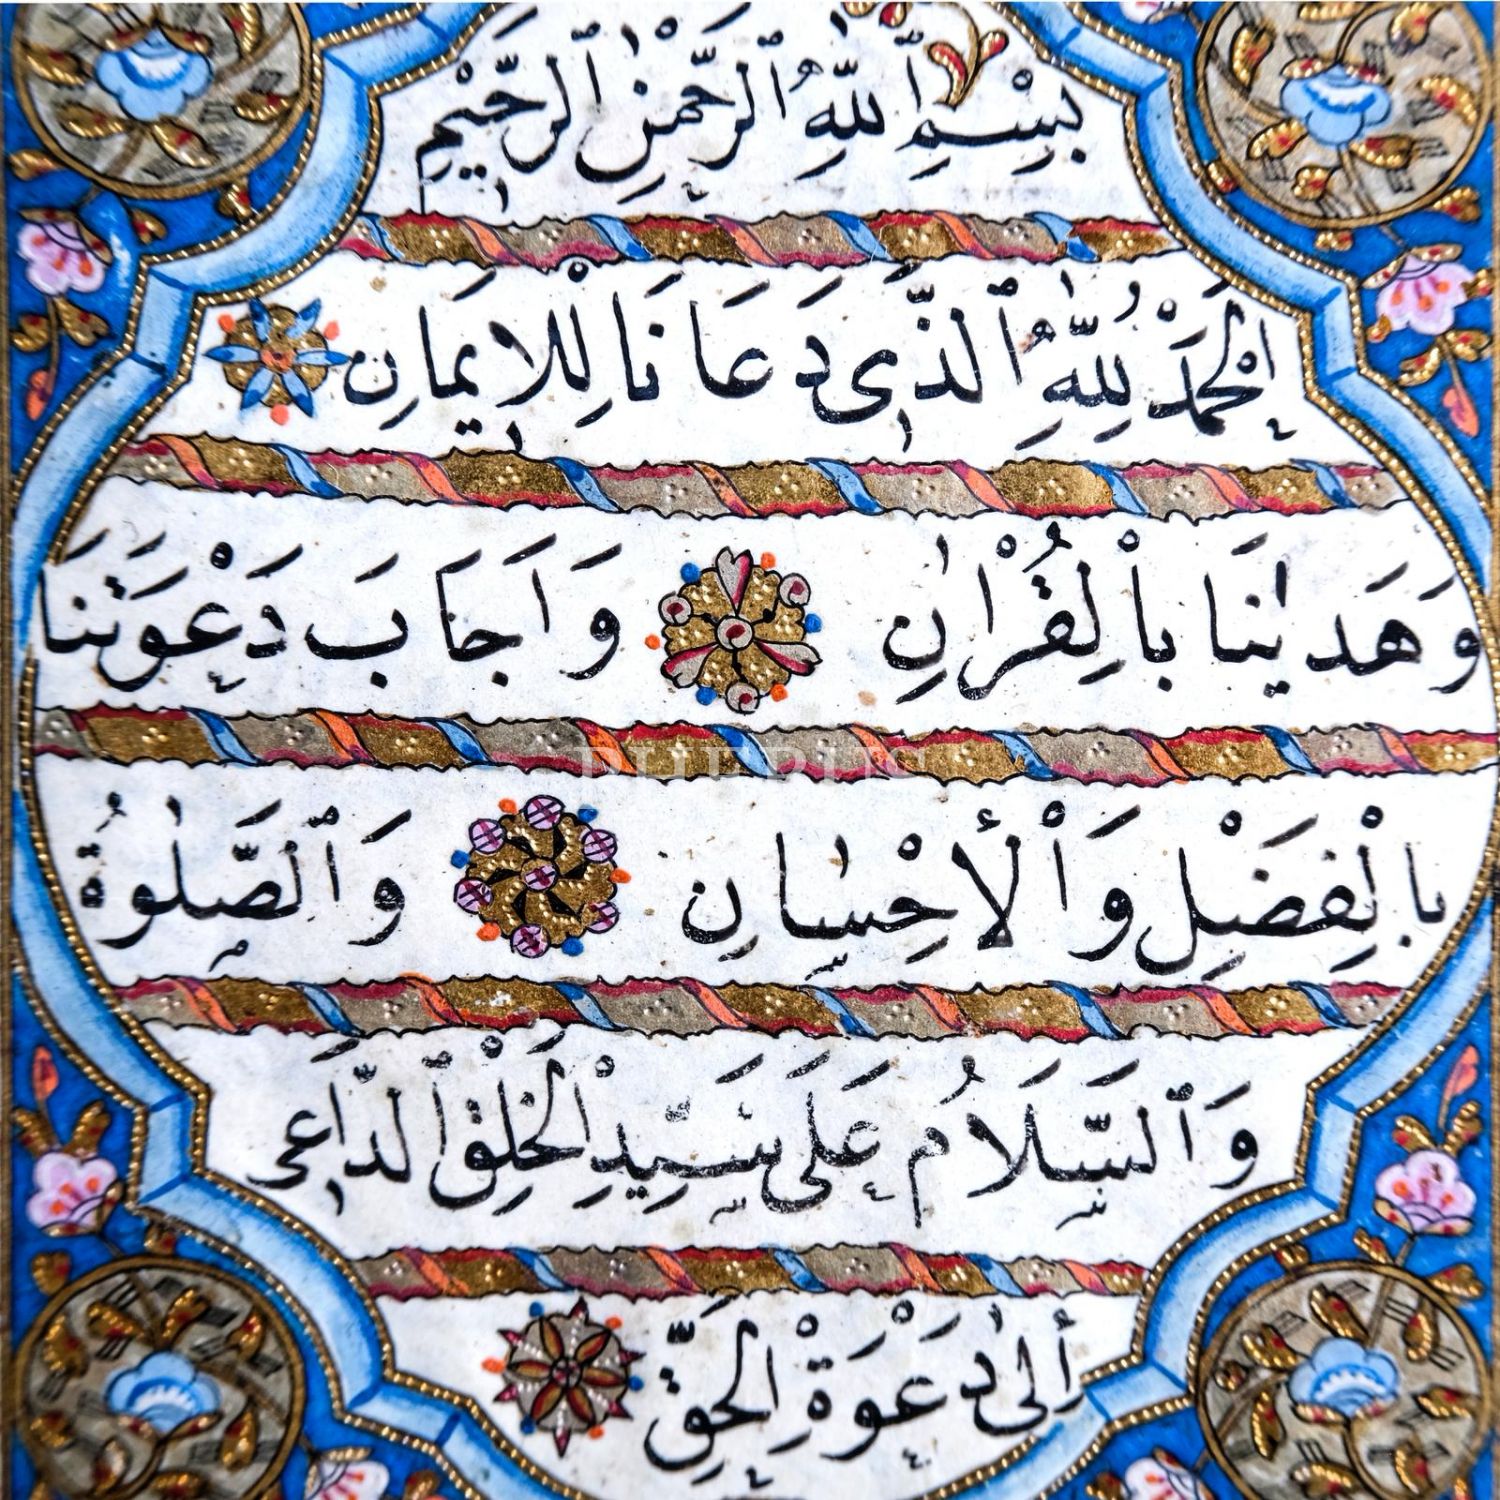 بِسْمِ ٱللّٰهِ ٱلرَّحْمٰنِ ٱلرَّحٖيمِ
اَلْحَمْدُ لِلّٰهِ ٱلَّذٖى دَعَانَا لِلْاٖيمَانِ
وَهَدٰينَا بِالْقُرْاٰنِ وَاَجَابَ دَعْوَتَنَا
بِالْفَضْلِ وَٱلْأِحْسٰانِ وَٱلصَّلٰوةُ
وَٱلسَّلَامُ عَلٰى سَيِّدِ الْخَلْقِ ٱلدَّاعٖى
أِلٰى دَعْوَةِ الْحَقِّ